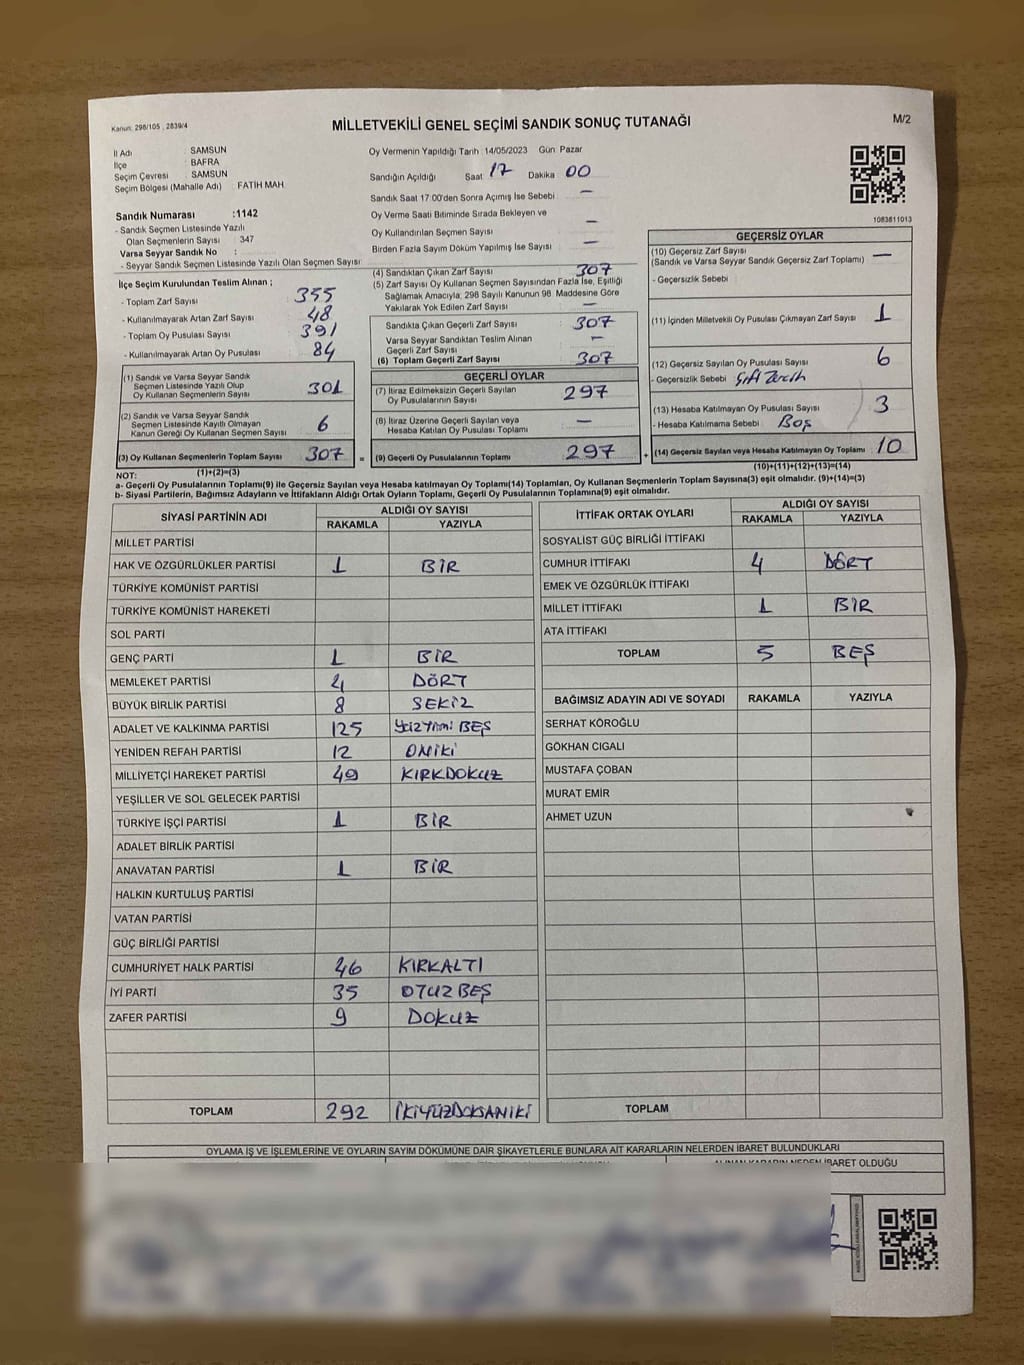 Kanun: 298/105 , 2839/4
MİLLETVEKİLİ GENEL SEÇİMİ SANDIK SONUÇ TUTANAĞI
M/2
İl Adı : SAMSUN
İlçe : BAFRA
Seçim Çevresi : SAMSUN
Seçim Bölgesi (Mahalle Adı) : FATİH MAH.
Oy Vermenin Yapıldığı Tarih 14/05/2023 Gün Pazar
Sandığın Açıldığı Saat 17 Dakika 00
Sandık Saat 17:00'den Sonra Açımış İse Sebebi –
Oy Verme Saati Bitiminde Sırada Bekleyen ve
Oy Kullandırılan Seçmen Sayısı –
Birden Fazla Sayım Döküm Yapılmış İse Sayısı –
1083811013
Sandık Numarası :1142
- Sandık Seçmen Listesinde Yazılı
Olan Seçmenlerin Sayısı : 347
Varsa Seyyar Sandık No :
- Seyyar Sandık Seçmen Listesinde Yazılı Olan Seçmen Sayısı:
İlçe Seçim Kurulundan Teslim Alınan ;
- Toplam Zarf Sayısı 355
- Kullanılmayarak Artan Zarf Sayısı 48
- Toplam Oy Pusulası Sayısı 391
- Kullanılmayarak Artan Oy Pusulası 84
(1) Sandık ve Varsa Seyyar Sandık
Seçmen Listesinde Yazılı Olup
Oy Kullanan Seçmenlerin Sayısı 301
(2) Sandık ve Varsa Seyyar Sandık
Seçmen Listesinde Kayıtlı Olmayan
Kanun Gereği Oy Kullanan Seçmen Sayısı 6
(3) Oy Kullanan Seçmenlerin Toplam Sayısı 307
(1)+(2)=(3)
(4) Sandıktan Çıkan Zarf Sayısı 307
(5) Zarf Sayısı Oy Kullanan Seçmen Sayısından Fazla İse, Eşitliği
Sağlamak Amacıyla, 298 Sayılı Kanunun 98. Maddesine Göre
Yakılarak Yok Edilen Zarf Sayısı –
Sandıkta Çıkan Geçerli Zarf Sayısı 307
Varsa Seyyar Sandıktan Teslim Alınan
Geçerli Zarf Sayısı –
(6) Toplam Geçerli Zarf Sayısı 307
GEÇERLİ OYLAR
(7) İtiraz Edilmeksizin Geçerli Sayılan
Oy Pusulalarının Sayısı 297
(8) İtiraz Üzerine Geçerli Sayılan veya
Hesaba Katılan Oy Pusulası Toplamı –
= (9) Geçerli Oy Pusulalarının Toplamı 297
GEÇERSİZ OYLAR
(10) Geçersiz Zarf Sayısı
(Sandık ve Varsa Seyyar Sandık Geçersiz Zarf Toplamı) –
- Geçersizlik Sebebi :
(11) İçinden Milletvekili Oy Pusulası Çıkmayan Zarf Sayısı 1
(12) Geçersiz Sayılan Oy Pusulası Sayısı 6
- Geçersizlik Sebebi Çift Tercih
(13) Hesaba Katılmayan Oy Pusulası Sayısı 3
- Hesaba Katılmama Sebebi Boş
+ (14) Geçersiz Sayılan veya Hesaba Katılmayan Oy Toplamı 10
(10)+(11)+(12)+(13)=(14)
NOT:
a- Geçerli Oy Pusulalarının Toplamı(9) ile Geçersiz Sayılan veya Hesaba katılmayan Oy Toplamı(14) Toplamları, Oy Kullanan Seçmenlerin Toplam Sayısına(3) eşit olmalıdır. (9)+(14)=(3)
b- Siyasi Partilerin, Bağımsız Adayların ve İttifakların Aldığı Ortak Oyların Toplamı, Geçerli Oy Pusulalarının Toplamına(9) eşit olmalıdır.
SİYASİ PARTİNİN ADI ALDIĞI OY SAYISI
RAKAMLA YAZIYLA
MİLLET PARTİSİ
HAK VE ÖZGÜRLÜKLER PARTİSİ 1 BİR
TÜRKİYE KOMÜNİST PARTİSİ
TÜRKİYE KOMÜNİST HAREKETİ
SOL PARTİ
GENÇ PARTİ 1 BİR
MEMLEKET PARTİSİ 4 DÖRT
BÜYÜK BİRLİK PARTİSİ 8 SEKİZ
ADALET VE KALKINMA PARTİSİ 125 YÜZYİRMİ BEŞ
YENİDEN REFAH PARTİSİ 12 ONİKİ
MİLLİYETÇİ HAREKET PARTİSİ 49 KIRKDOKUZ
YEŞİLLER VE SOL GELECEK PARTİSİ
TÜRKİYE İŞÇİ PARTİSİ 1 BİR
ADALET BİRLİK PARTİSİ
ANAVATAN PARTİSİ 1 BİR
HALKIN KURTULUŞ PARTİSİ
VATAN PARTİSİ
GÜÇ BİRLİĞİ PARTİSİ
CUMHURİYET HALK PARTİSİ 46 KIRKALTI
İYİ PARTİ 35 OTUZ BEŞ
ZAFER PARTİSİ 9 DOKUZ
TOPLAM 292 İKİYÜZDOKSANİKİ
İTTİFAK ORTAK OYLARI ALDIĞI OY SAYISI
RAKAMLA YAZIYLA
SOSYALİST GÜÇ BİRLİĞİ İTTİFAKI
CUMHUR İTTİFAKI 4 DÖRT
EMEK VE ÖZGÜRLÜK İTTİFAKI
MİLLET İTTİFAKI 1 BİR
ATA İTTİFAKI
TOPLAM 5 BEŞ
BAĞIMSIZ ADAYIN ADI VE SOYADI RAKAMLA YAZIYLA
SERHAT KÖROĞLU
GÖKHAN CIGALI
MUSTAFA ÇOBAN
MURAT EMİR
AHMET UZUN
TOPLAM
OYLAMA İŞ VE İŞLEMLERİNE VE OYLARIN SAYIM DÖKÜMÜNE DAİR ŞİKAYETLERLE BUNLARA AİT KARARLARIN NELERDEN İBARET BULUNDUKLARI
ALINAN KARARIN NEDEN İBARET OLDUĞU